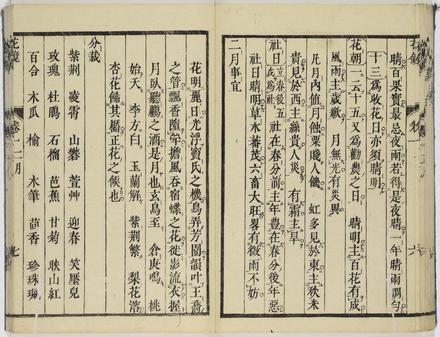 花鏡 卷一
晴百果實最忌夜雨若得是夜晴一年晴雨調勻
十三為收花日亦須晴明
花朝二云十五又為勸農之日 晴明主百花有成
風雨主歲歉 月無光有災異
凡月內值月蝕粟賤人饑 虹多見於東主秋米
貴見於西主絲貴人災 有霜主旱
社日立春後五戊為社 社在春分前主年豐在春分後年惡
社日晴明草木蕃茂六畜大旺畧有微雨不妨
二月事宜
花明麗日光浮竇氏之機鳥弄芳園韻叶王喬
之管飄香隨擔風吞宿蝶之花徙影流衣握
月臥聽鸝之酒是月也玄鳥至 倉庚鳴 桃
始夭 李方白 玉蘭解 紫荊繁 梨花溶
杏花飾其靨正花之候也
分栽
紫荊 凌霄 山礬 萱草 迎春 笑靨兒
玫瑰 杜鵑 石榴 芭蕉 甘菊 映山紅
百合 木瓜 榆 木筆 茴香 珍珠
花鏡 卷一二月 七